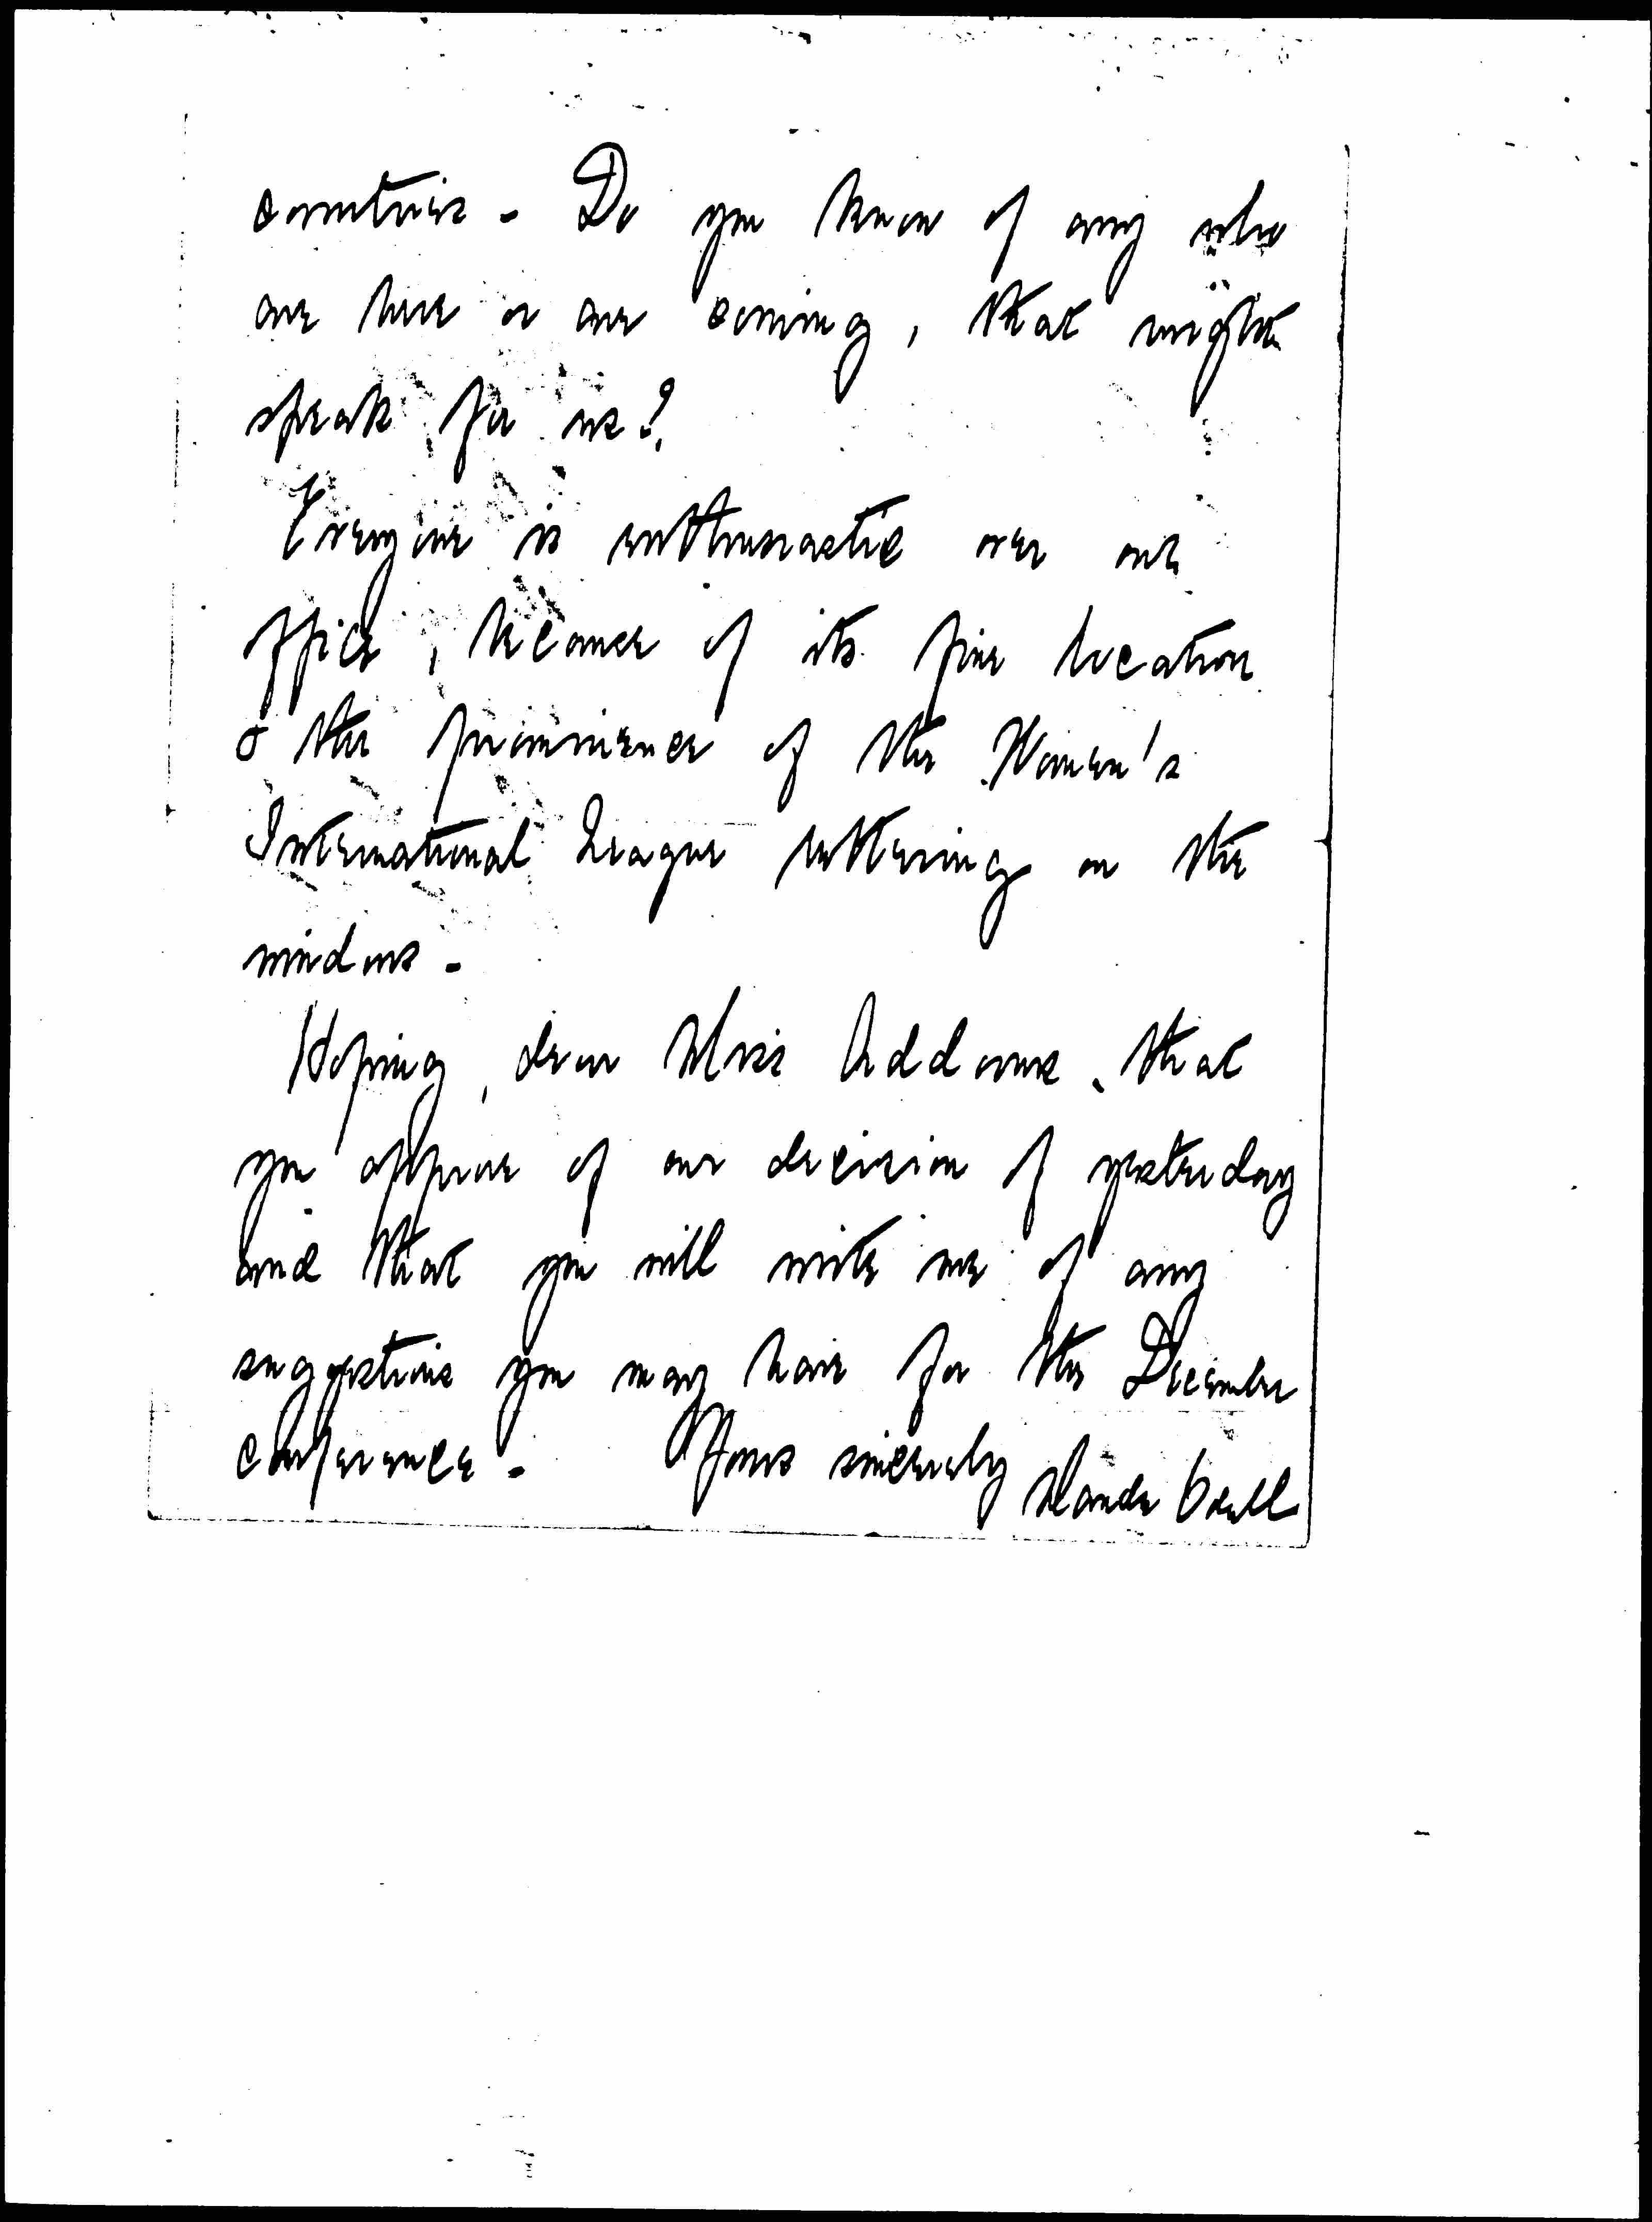 countries - Do you know of any who
are here or are coming, that might
speak for us?
Everyone is enthusiastic over our
office, because of its fine location
& the prominence of the Women's
International League lettering on the
windows -
Hoping, dear Miss Addams, that
you approve of our decision of yesterday
and that you will write me of any
suggestions you may have for the December
conference - Yours sincerely Maude Odell